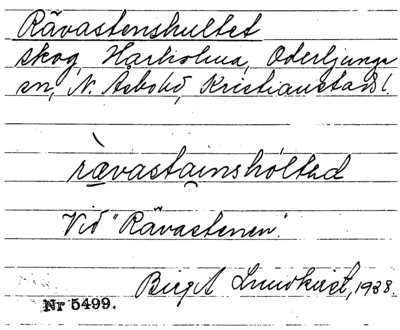 Rävastenshultet
skog, Harholma, Oderljunga
sn, N. Åsbohd, Kristianstads l.
rävastainshóltəd
Vid "Rävastenen".
Birgit Lundkvist, 1938.
Nr 5499.